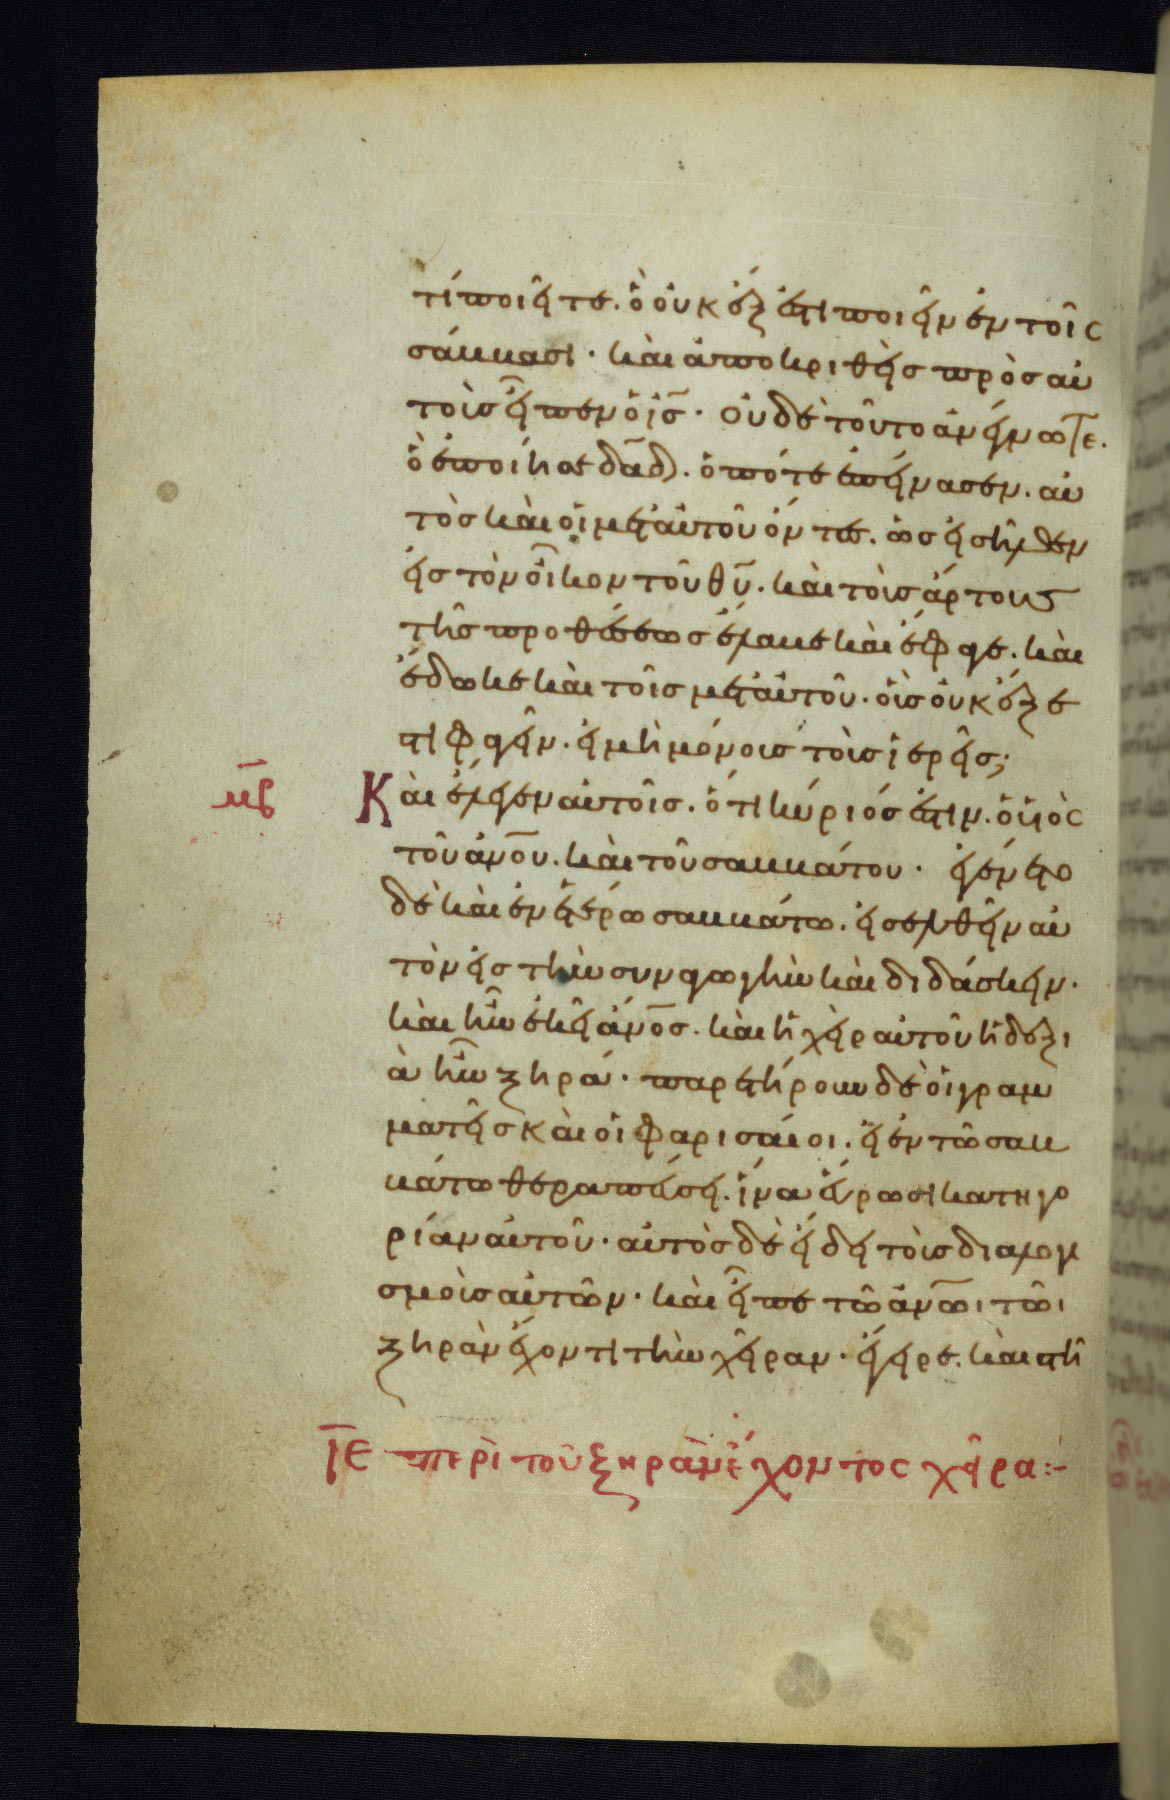 τί ποιεῖτε. ὃ οὐκ ἔξεστι ποιεῖν ἐν τοῖς
σάββασι· καὶ ἀποκριθεὶς πρὸς αὐ
τοὺς εἶπεν ὁ ις̅· οὐδὲ τοῦτο ἀνέγνωτε.
ὃ ἐποίησε δα̅δ. ὁπότε ἐπείνασεν. αὐ
τὸς καὶ οἱ μετ' αὐτοῦ ὄντες. ὡς εἰσῆλθεν
εἰς τὸν οἶκον τοῦ θυ̅. καὶ τοὺς ἄρτους
τῆς προθέσεως ἔλαβε καὶ ἔφαγε. καὶ
ἔδωκε καὶ τοῖς μετ' αὐτοῦ. οἷς οὐκ ἔξε
στι φαγεῖν. εἰ μὴ μόνοις τοὺς ἱερεῖς;
μβ̅ Καὶ ἔλεγεν αὐτοῖς. ὅτι κύριός ἐστιν. ὁ υἱὸς
τοῦ ἀνο̅υ. καὶ τοῦ σαββάτου· ἐγένετο
δὲ καὶ ἐν ἑτέρω σαββάτω. εἰσελθεῖν αὐ
τὸν εἰς τὴν συναγωγὴν καὶ διδάσκειν·
καὶ ἦν ἐκεῖ ἄνο̅ς. καὶ ἡ χεὶρ αὐτοῦ ἡ δεξι
ὰ ἦν ξηρά· παρετήρουν δὲ οἱ γραμ
ματεῖς καὶ οἱ φαρισαῖοι. εἰ ἐν τῶ σαβ
βάτω θεραπεύσει. ἵνα εὕρωσι κατηγο
ρίαν αὐτοῦ· αὐτὸς δὲ ᾔδει τοὺς διαλογι
σμοὺς αὐτῶν· καὶ εἶπε τῶ ἀνω̅ι τῶι
ξηρὰν ἔχοντι τὴν χεῖραν· ἔγειρε. καὶ στῆ
ιε̅ περὶ τοῦ ξηρὰν ἔχοντος χεῖρα:-